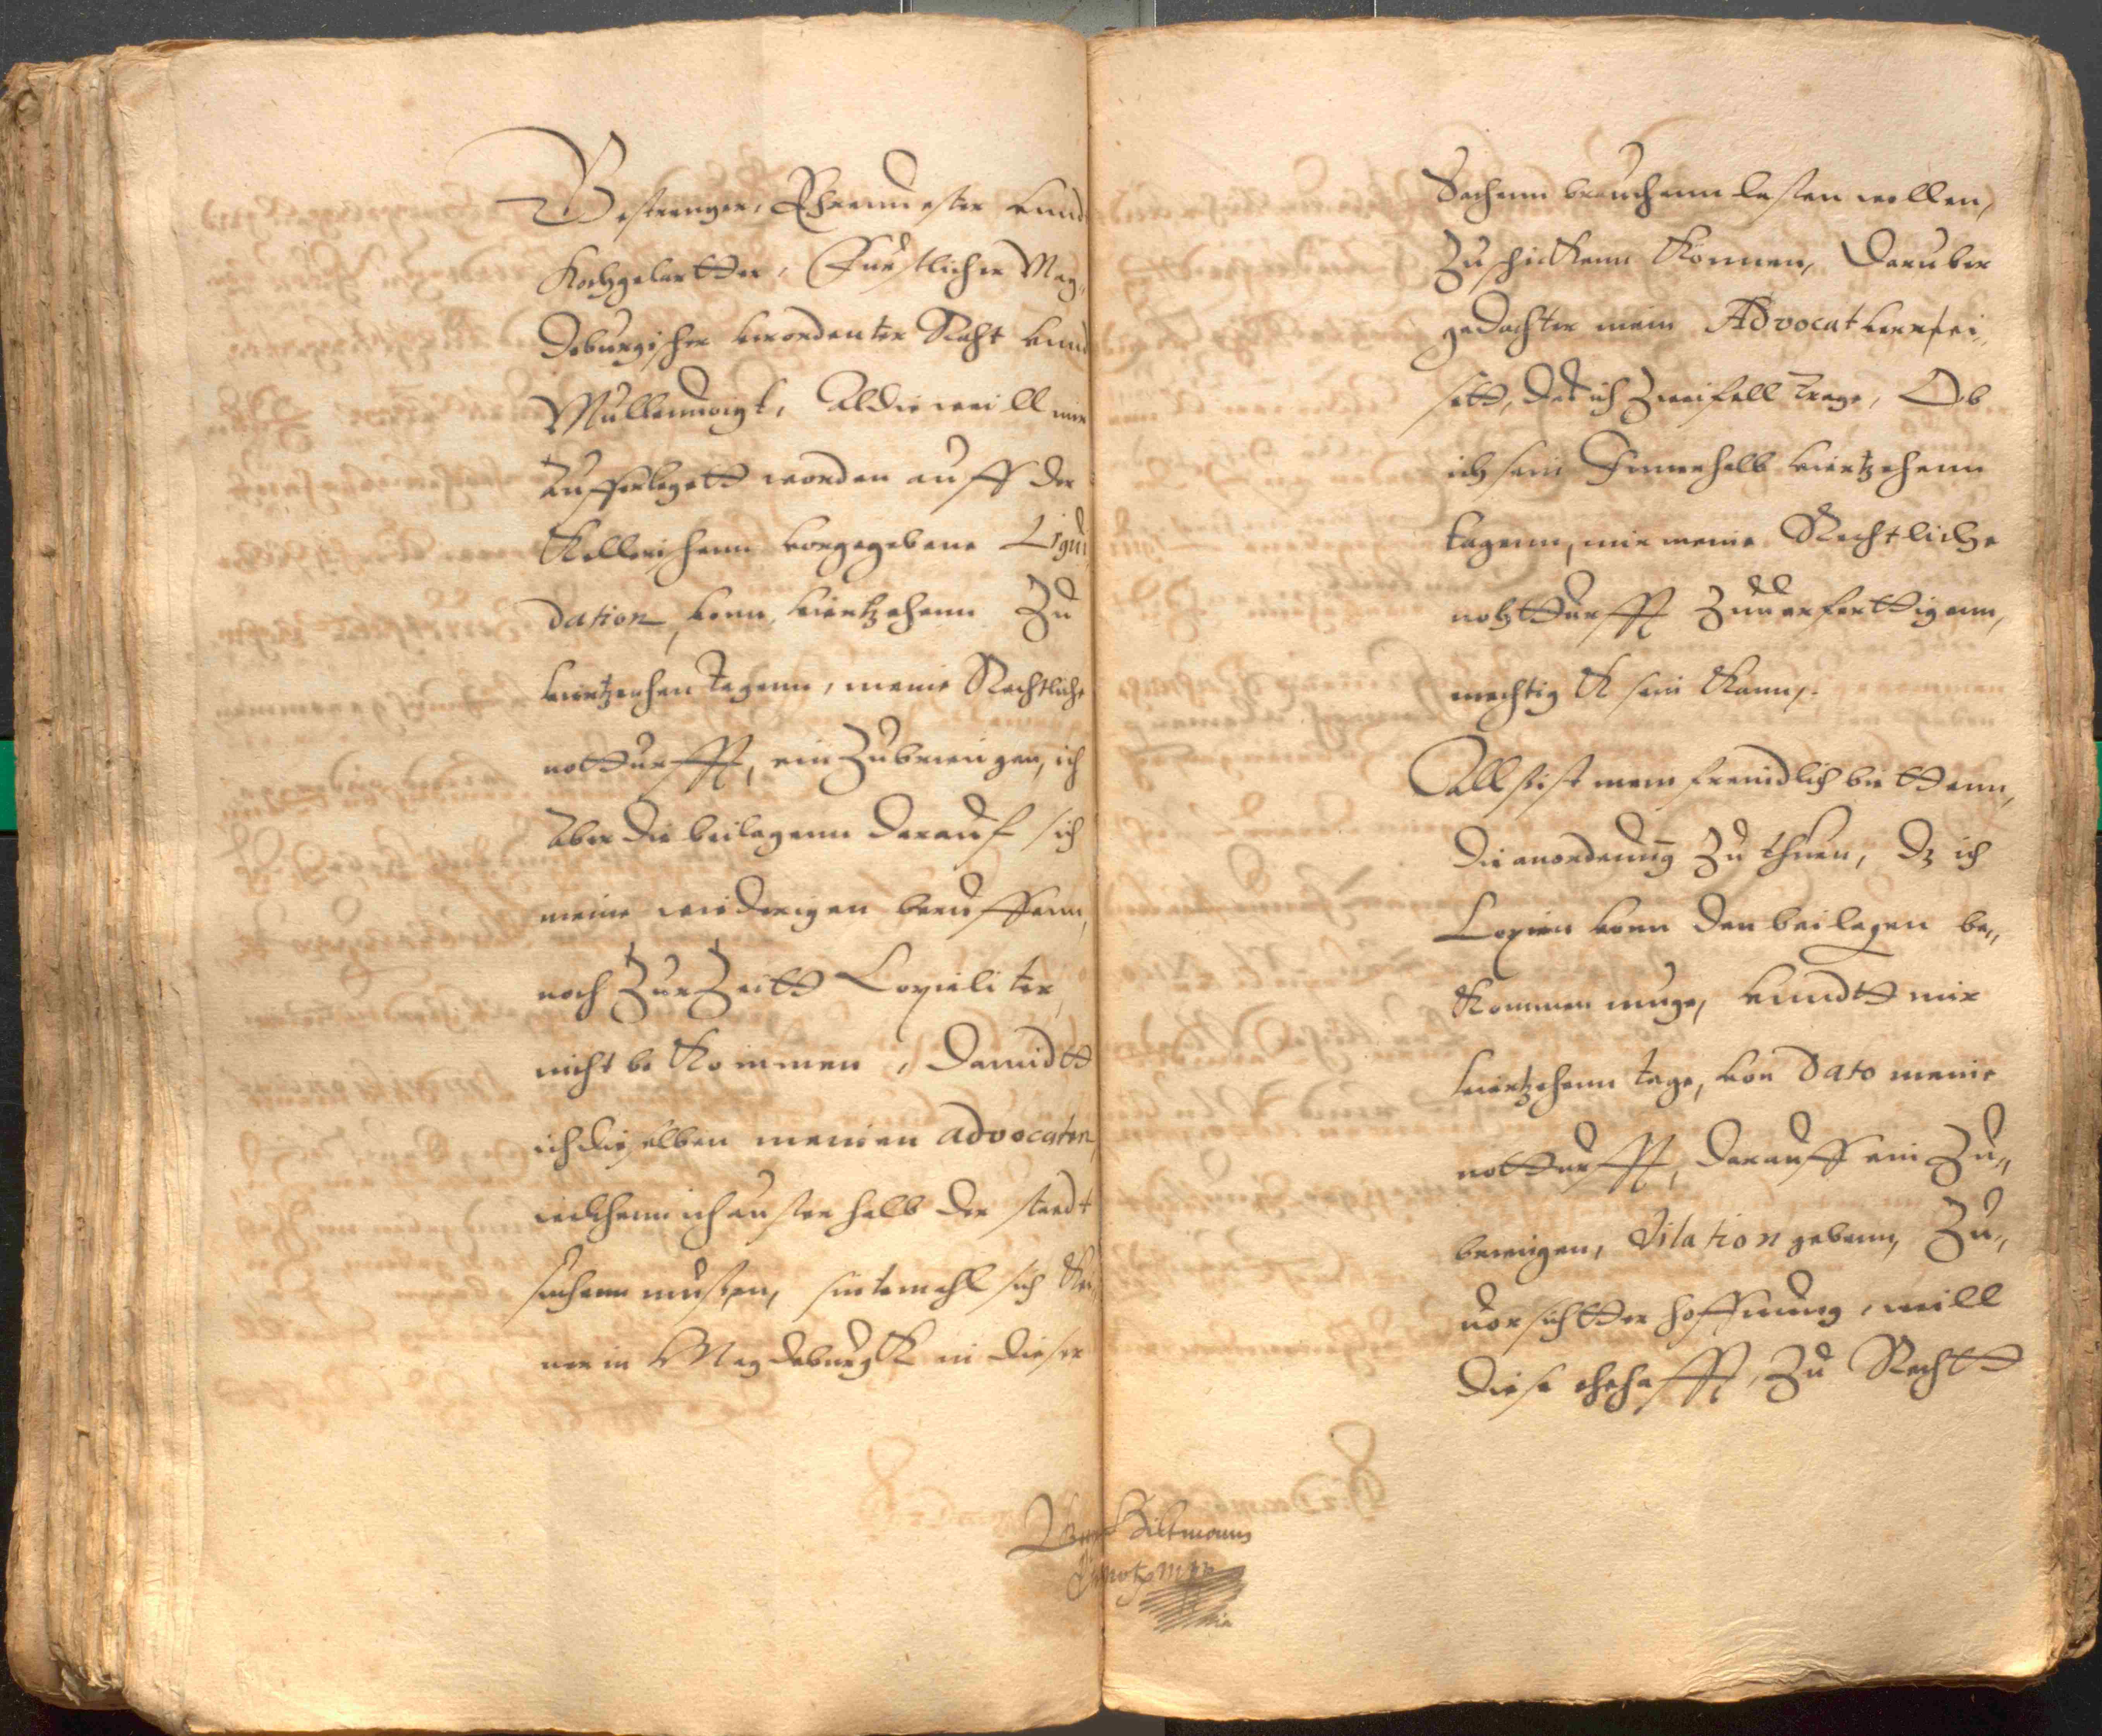 Gestrenger, Ehrenuester vnnd
Hochgelartter, Furstlicher Mag,,
deburgischer verordenter Raht vnnd
Mullenvoigt, Aldieweill mir
Aufferlegett worden auff der
Kellerischenn vorgegebene Liqui
dation, vonn, viertzehenn Zu
viertzenhen tagenn, meine Rechtliche
notturfft, ein Zubrengen, ich
Aber die beilagenn darauf sich
meine widerigen beruffenn,
noch Zur Zeitt Copialiter,
nicht bekommen, damidtt
ich dieselben meinen advocaten,
welchenn ich ausser halb der stadt
suchenn mussen, sintemahl sich kei,,
ner in Magdeburgk in dieser
Sachenn brauchenn lassen wollen,
Zuschickenn können, daruber
gedachter mein Advocat verrei,,
sett, das ich Zweifell trage, Ob
ich sein Innerhalb viertzehenn
tagenn, mir meine Rechtliche
nohtturfft Zuuerferttigenn,
mechtig sein kann,
Allss ist mein freundlich bittenn,
die anordenung Zu thuen, dz ich
Copien vonn den beilagen be,,
kommen muge, vnndtt mir
viertzehenn tage, von dato meine
notturfft, darauff ein Zu,,
brengen, dilation gebenn, Zu,,
uorsichtter hoffnung, will
diese ehehafft, Zu Rechtt
Hiltmann